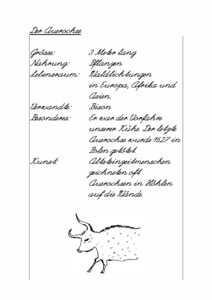 Der Auerochse
Grösse: 3 Meter lang
Nahrung: Pflanzen
Lebensraum: Waldlichtungen
in Europa, Afrika und
Asien.
Verwandte: Bison
Besonderes: Er war der Vorfahre
unserer Kühe. Der letzte
Auerochse wurde 1627 in
Polen getötet.
Kunst: Altsteinzeitmenschen
zeichneten oft
Auerochsen in Höhlen
auf die Wände.